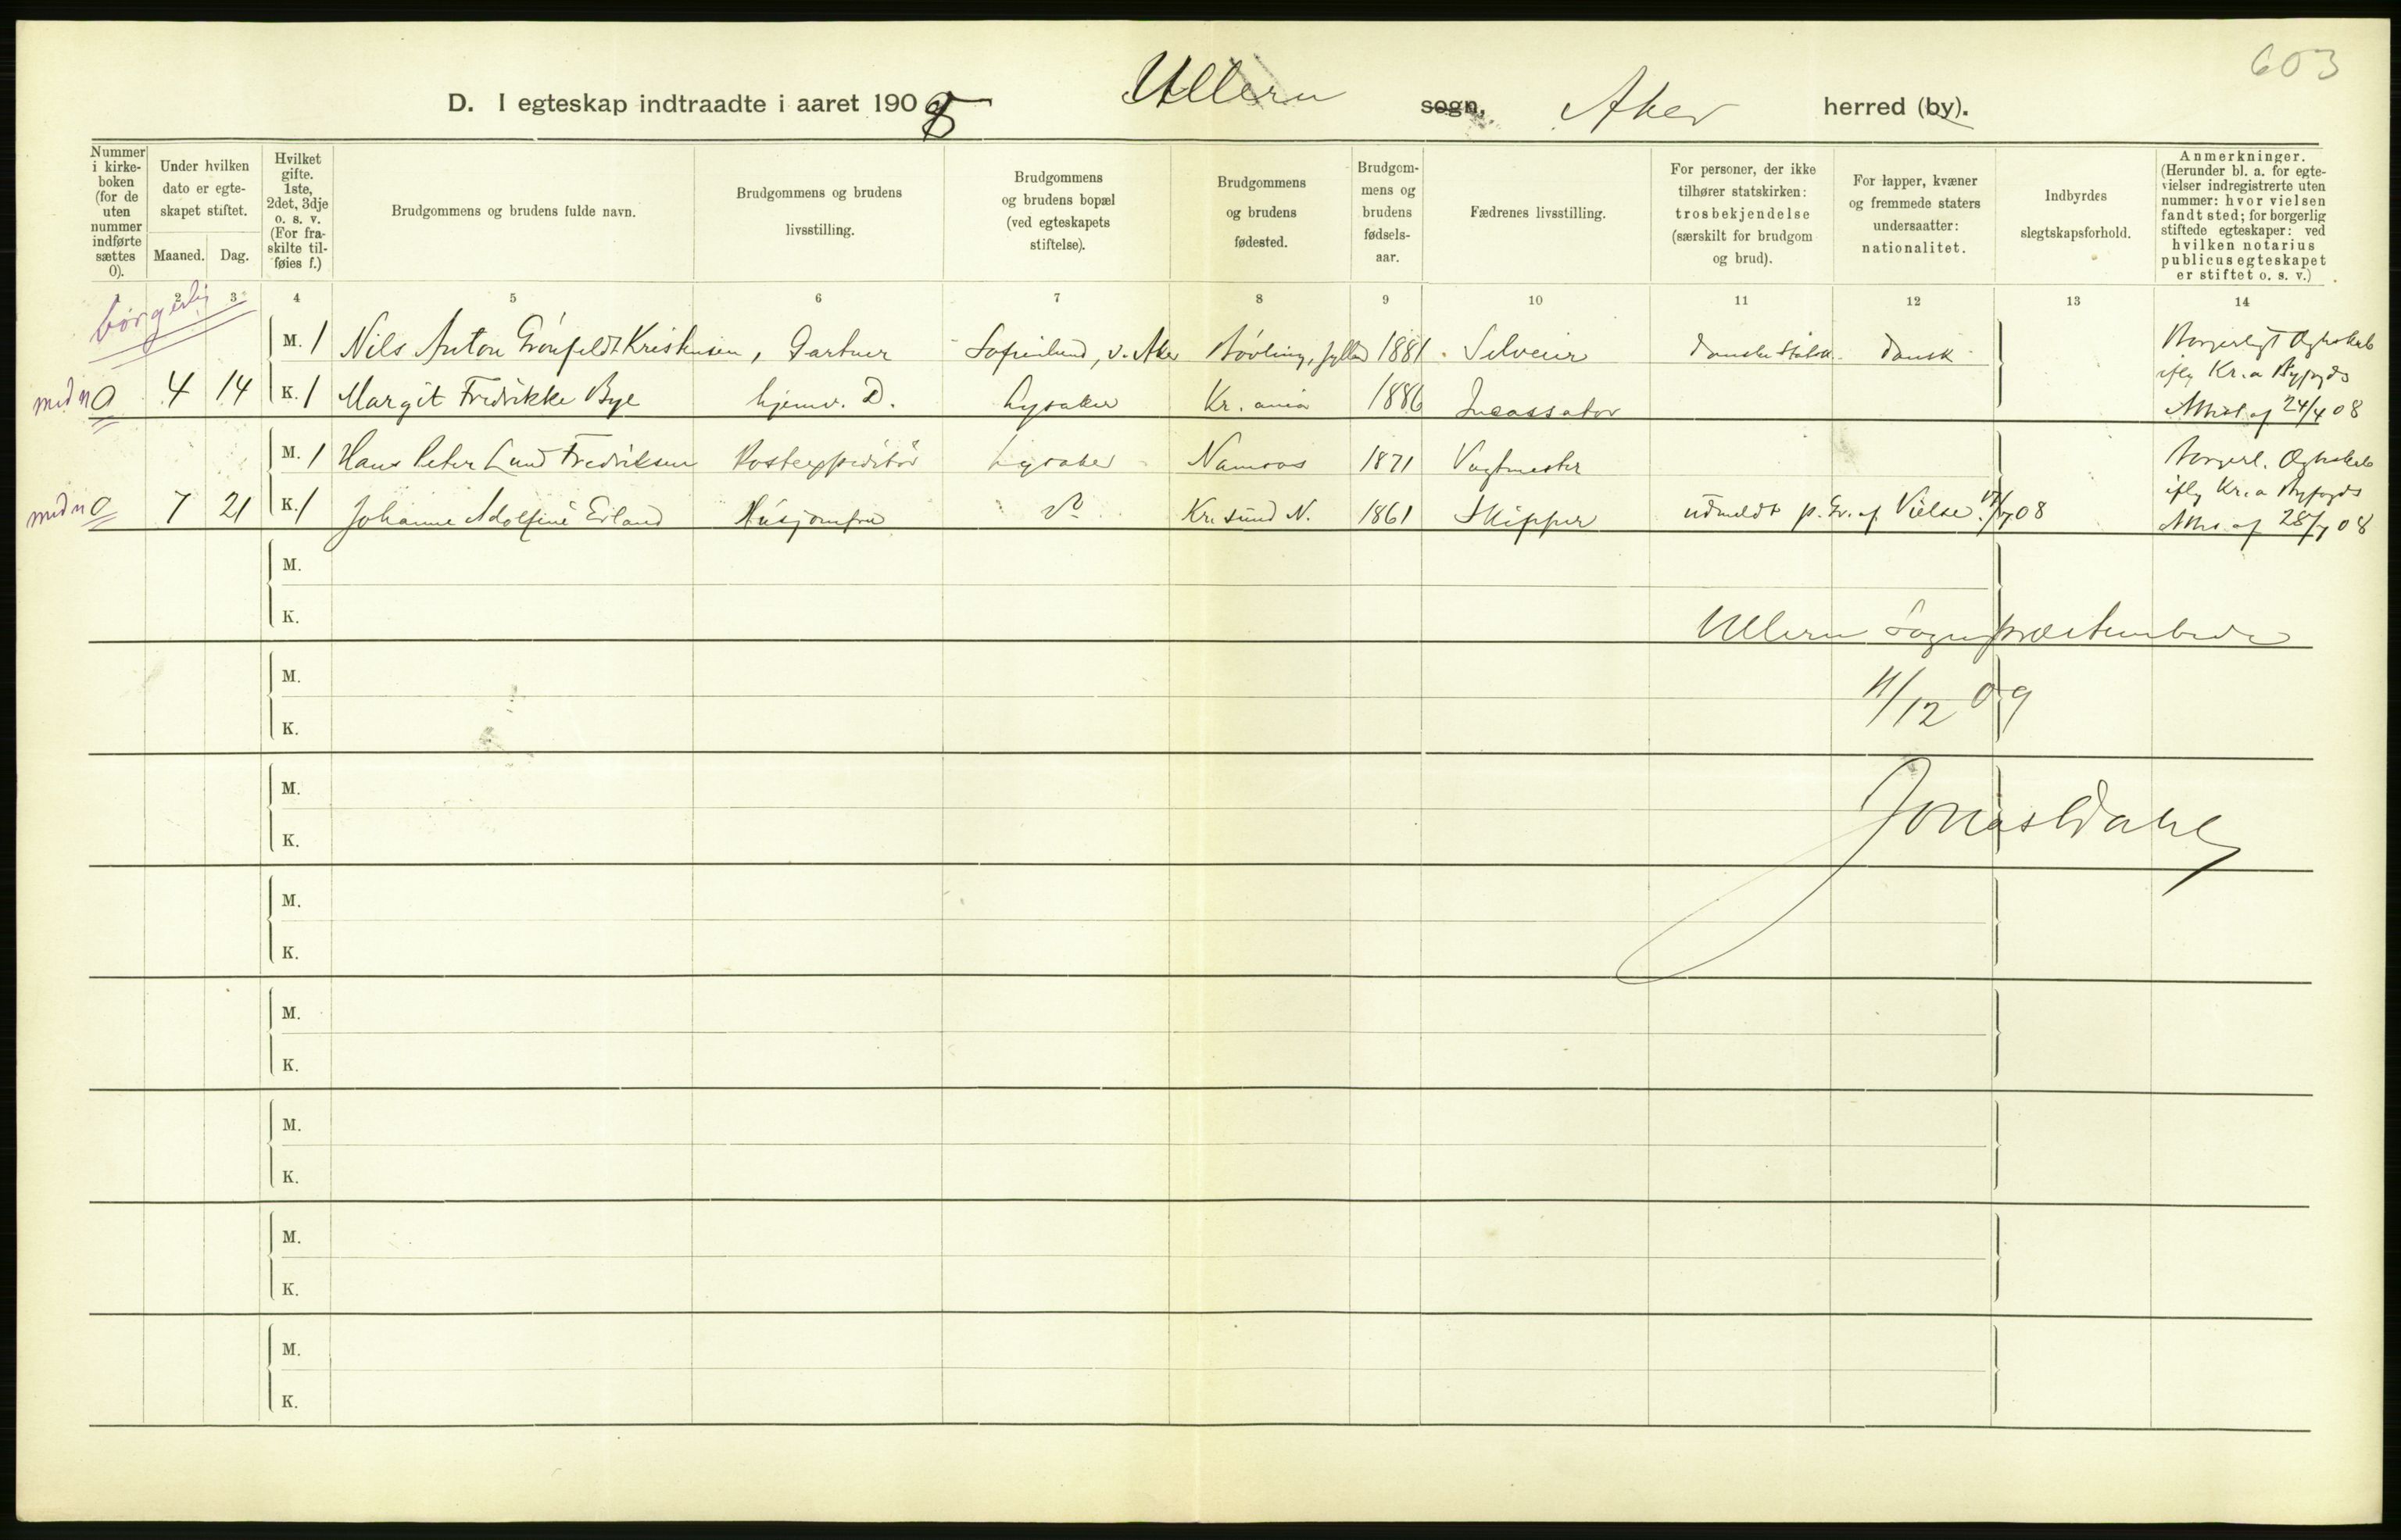 603
D. I egteskap indtraadte i aaret 1908 Ullern sogn, Aker herred (by).
Nummer i kirkeboken (for de uten nummer indførte sættes 0).
Under hvilken dato er egteskapet stiftet.
Maaned. Dag.
Hvilket gifte. 1ste, 2det, 3dje o. s. v. (For fraskilte tilføies f.)
Brudgommens og brudens fulde navn.
Brudgommens og brudens livsstilling.
Brudgommens og brudens bopæl (ved egteskapets stiftelse).
Brudgommens og brudens fødested.
Brudgommens og brudens fødselsaar.
Fædrenes livsstilling.
For personer, der ikke tilhører statskirken: trosbekjendelse (særskilt for brudgom og brud).
For lapper, kvæner og fremmede staters undersaatter: nationalitet.
Indbyrdes slegtskapsforhold.
Anmerkninger. (Herunder bl. a. for egtevielser indregistrerte uten nummer: hvor vielsen fandt sted; for borgerlig stiftede egteskaper: ved hvilken notarius publicus egteskapet er stiftet o. s. v.)
1 2 3 4 5 6 7 8 9 10 11 12 13 14
borgerlig
M. 1 Nils Anton Grönfeldt Kristensen, Gartner Sofienlund, v. Aker Bövling, Jylland 1881 Selveier danske Statsk. Dansk Borgerligt Ægteskab
iflg Kr.a Byfogds
med n 0 4 14 K. 1 Margit Fredrikke Bye hjemv. D. Lysaker Kr.ania 1886 Incassator Attest af 24/4 08
M. 1 Hans Peter Lund Fredriksen Postexpeditör Lysaker Namsos 1871 Vagtmester Borgerl. Ægteskab
iflg Kr.a Byfogds
med n 0 7 21 K. 1 Johanne Adolfine Eiland Husjomfru Do Kr.sund N. 1861 Skipper udmeldt p. Gr. af Vielse /7 08 Attest af 28/7 08
M.
K.
Ullern Sognepræstembede
M.
11/12 09
K.
M.
Jonas Dahl
K.
M.
K.
M.
K.
M.
K.
M.
K.
M.
K.